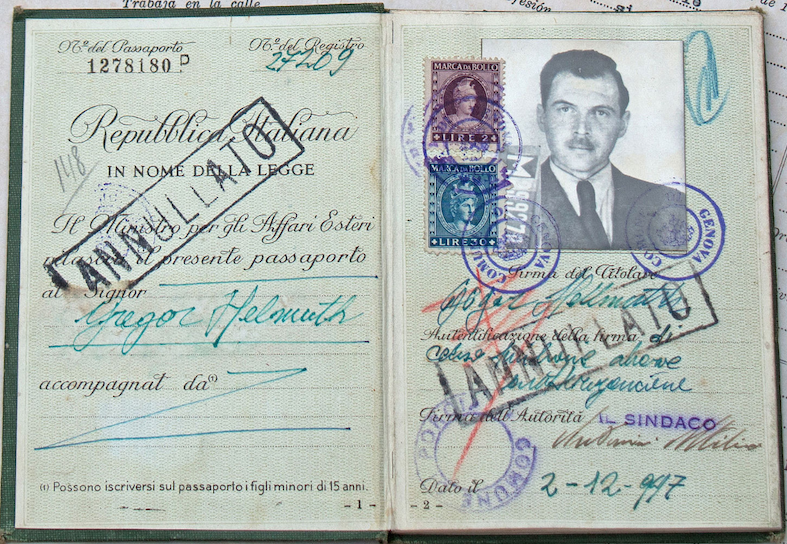 Trabaja en la calle
Nº del Passaporto
1278180 P
Nº del Registro
27209
148
Repubblica Italiana
IN NOME DELLA LEGGE
ANNULLATO
Il Ministro per gli Affari Esteri
rilascia il presente passaporto
al Signor
Gregor Helmuth
accompagnat da (1)
(1) Possono iscriversi sul passaporto i figli minori di 15 anni.
- 1 -
MARCA DA BOLLO
LIRE 2
MARCA DA BOLLO
LIRE 30
GENOVA
COMUNE
GENOVA
Firma del Titolare
Autentificazione della firma di
ANNULLATO
Firma dell'Autorità IL SINDACO
COMUNE
Dato il 2-12-947
- 2 -